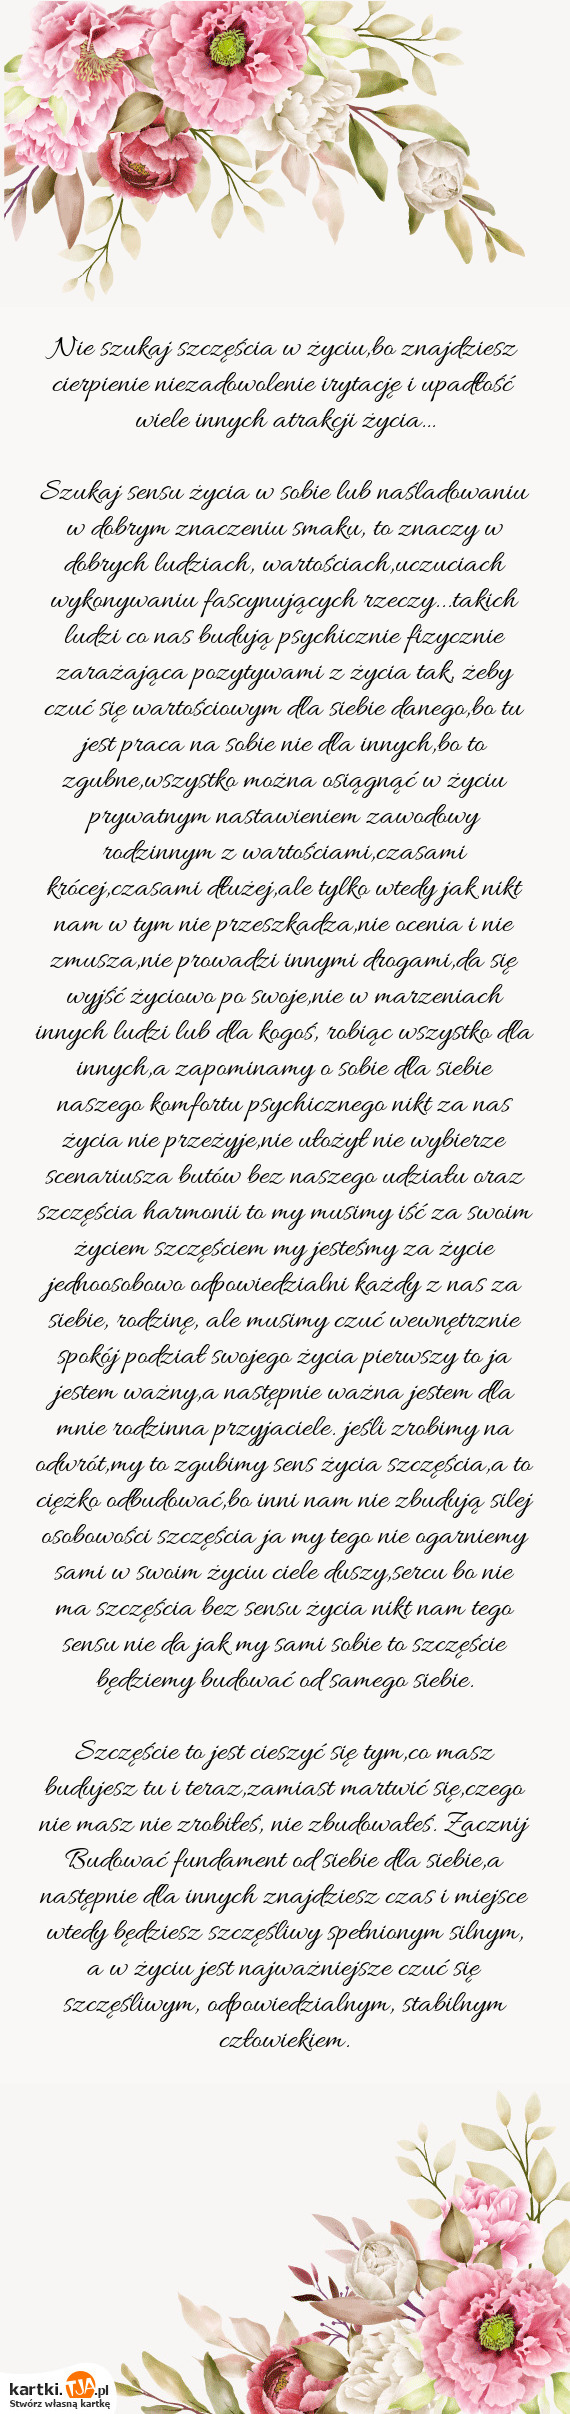 Nie szukaj szczęścia w życiu,bo znajdziesz
cierpienie niezadowolenie irytację i upadłość
wiele innych atrakcji życia...
Szukaj sensu życia w sobie lub naśladowaniu
w dobrym znaczeniu smaku, to znaczy w
dobrych ludziach, wartościach,uczuciach
wykonywaniu fascynujących rzeczy...takich
ludzi co nas budują psychicznie fizycznie
zarażająca pozytywami z życia tak, żeby
czuć się wartościowym dla siebie danego,bo tu
jest praca na sobie nie dla innych,bo to
zgubne,wszystko można osiągnąć w życiu
prywatnym nastawieniem zawodowy
rodzinnym z wartościami,czasami
krócej,czasami dłużej,ale tylko wtedy jak nikt
nam w tym nie przeszkadza,nie ocenia i nie
zmusza,nie prowadzi innymi drogami,da się
wyjść życiowo po swoje,nie w marzeniach
innych ludzi lub dla kogoś, robiąc wszystko dla
innych,a zapominamy o sobie dla siebie
naszego komfortu psychicznego nikt za nas
życia nie przeżyje,nie ułożył nie wybierze
scenariusza butów bez naszego udziału oraz
szczęścia harmonii to my musimy iść za swoim
życiem szczęściem my jesteśmy za życie
jednoosobowo odpowiedzialni każdy z nas za
siebie, rodzinę, ale musimy czuć wewnętrznie
spokój podział swojego życia pierwszy to ja
jestem ważny,a następnie ważna jestem dla
mnie rodzinna przyjaciele. jeśli zrobimy na
odwrót,my to zgubimy sens życia szczęścia,a to
ciężko odbudować,bo inni nam nie zbudują silej
osobowości szczęścia ja my tego nie ogarniemy
sami w swoim życiu ciele duszy,sercu bo nie
ma szczęścia bez sensu życia nikt nam tego
sensu nie da jak my sami sobie to szczęście
będziemy budować od samego siebie.
Szczęście to jest cieszyć się tym,co masz
budujesz tu i teraz,zamiast martwić się,czego
nie masz nie zrobiłeś, nie zbudowałeś. Zacznij
Budować fundament od siebie dla siebie,a
następnie dla innych znajdziesz czas i miejsce
wtedy będziesz szczęśliwy spełnionym silnym,
a w życiu jest najważniejsze czuć się
szczęśliwym, odpowiedzialnym, stabilnym
człowiekiem.
kartki.TJA.pl
Stwórz własną kartkę